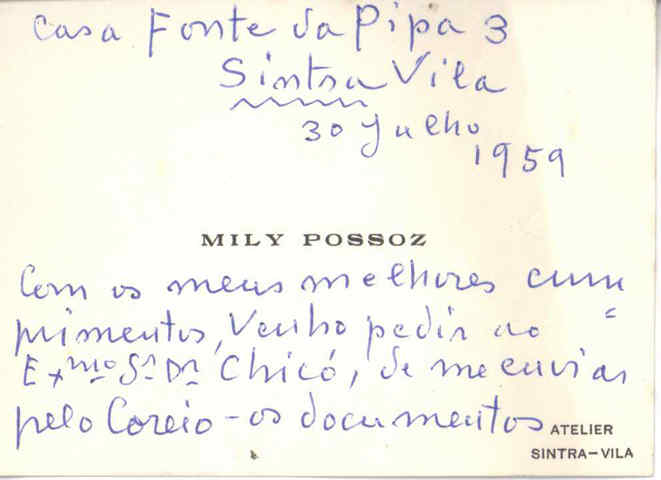 Casa Fonte da Pipa 3
Sintra Vila
30 Julho
1959
MILY POSSOZ
Com os meus melhores cum=
primentos, Venho pedir ao
Exmo Sr Dr Chicó, de me enviar
pelo Coreio - os documentos
ATELIER
SINTRA-VILA